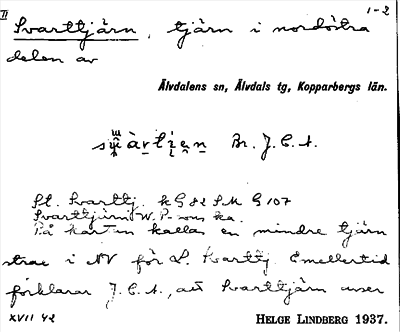 II 1-2
Svarttjärn, tjärn i nordöstra
delen av
Älvdalens sn, Älvdals tg, Kopparbergs län.
Br. J. E. A.
St. Svarttj. k G 82 S.M G 107
Svarttjärn W. P-son ka.
På kartan kallas en mindre tjärn
strax i NV för L. Svarttj. Emellertid
förklarar J. E. A., att Svarttjärn avser
XVII 42 HELGE LINDBERG 1937.